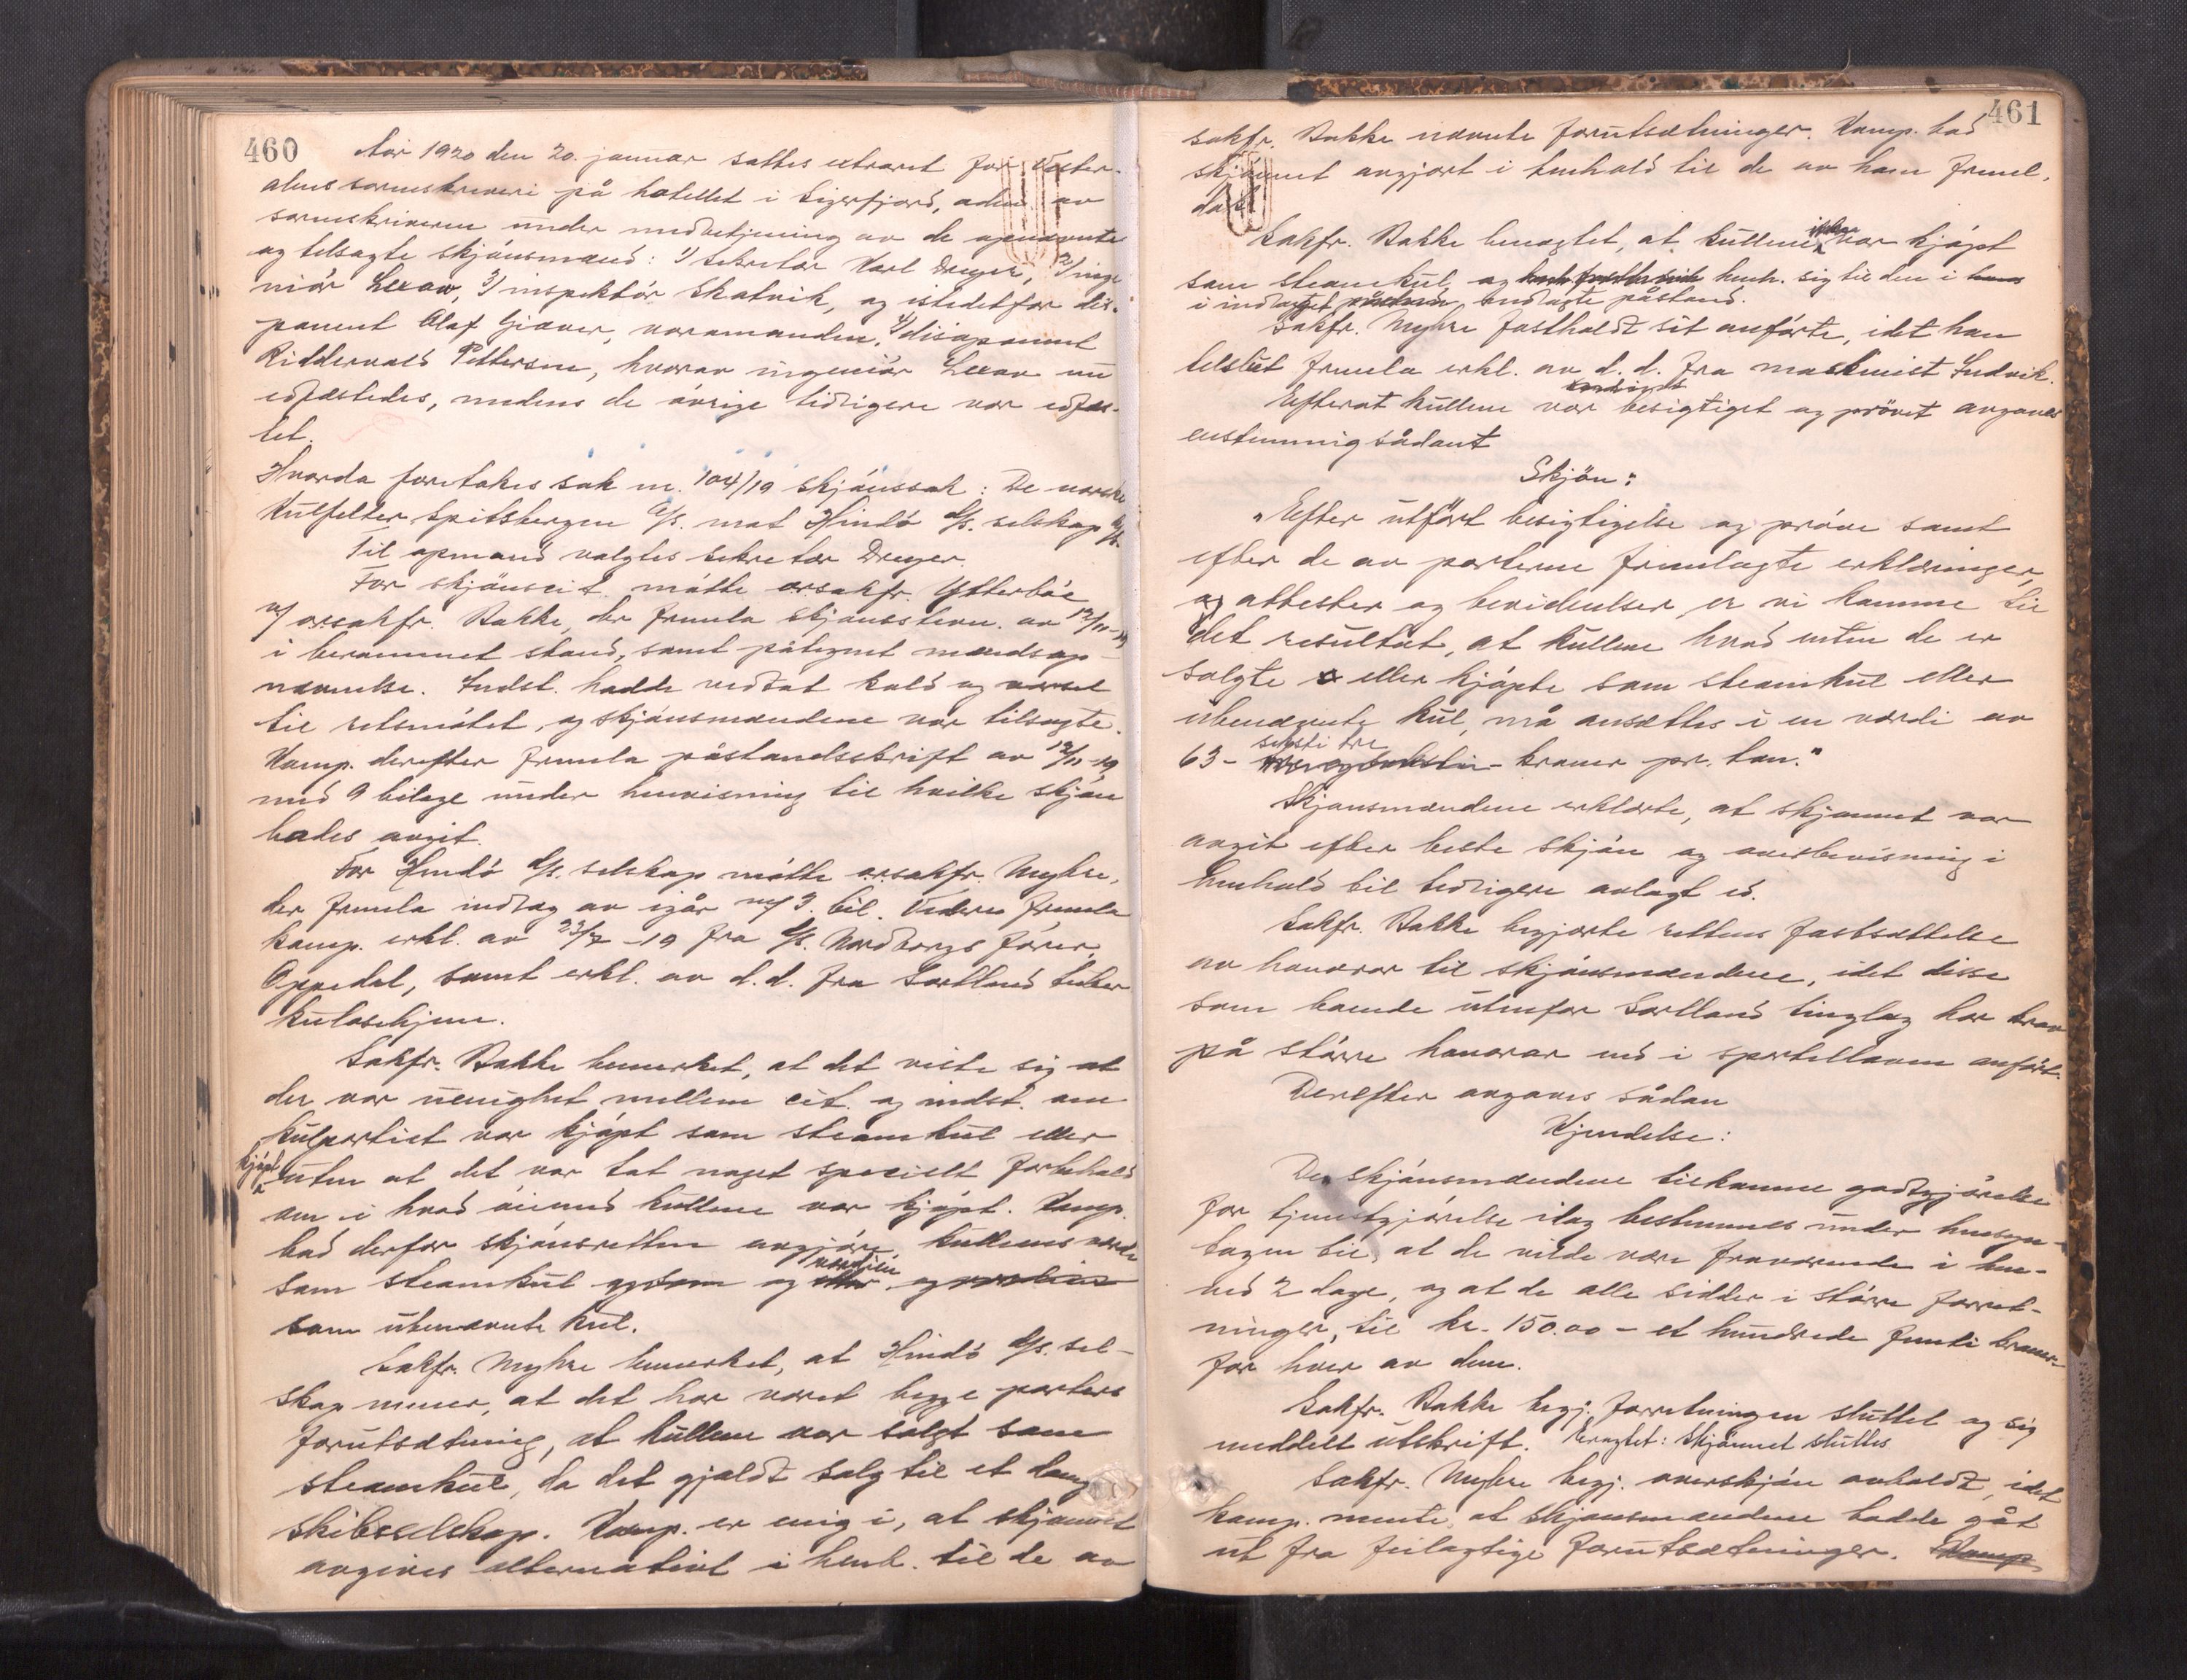 460
Aar 1920 den 20. januar sattes extraret for Vester-
aalens sorenskriveri på hotellet i Sigerfjord, adm. av
sorenskriveren under medbetjening av de opnævnte
og tilsagte skjönsmænd: 1) sekretær Karl Dreyer, 2) inge
niör Lexow, 3) inspektör Skatvik, og istedetfor dis-
ponent Olaf Giæver, varamanden, 4) disponent
Riddervold Pettersen, hvorav ingeniör Lexow nu
edfæstedes, medens de övrige tidligere var edfæs-
tet.
Hvorda foretokes sak nr. 104/19 skjönssak: De norske
Kulfelter Spitsbergen A/S. mot Hindö D/S. selskap A/S.
Til opmand valgtes sekretær Dreyer.
For skjönscit. mötte orsakfr. Ytterböe
v/ orsakfr. Bakke, der fremla skjönsstevn. av 12/11-19
i berammet stand, samt påtegnet mændsop-
nævnelse. Indst. hadde vedtat kald og varsel
til retsmötet, og skjönsmændene var tilsagte.
Komp. derefter fremla påstandsskrift av 12/11-19
med 9 bilage under henvisning til hvilke skjön
bades avgit.
For Hindö D/S. selskap mötte orsakfr. Myhre,
der fremla indlæg av igår m/ 3. bil. Videre fremla
komp. erkl. av 23/7-19 fra D/S. Nordborgs förer,
Oppedal, samt erkl. av d.d. fra Sortland
Sakfr. Bakke bemerket, at det viste sig at
der var uenighet mellem cit. og indst. om
kulpartiet var kjöpt som steamkul eller
kjöpt uten at det var tat noget specielt forbehold
om i hvad öiemed kullene var kjöpt. Komp.
bad derfor skjönsretten avgjöre kullenes værdi
som steamkul og som og eller værdien og værdien
som ubenævnte kul.
Sakfr. Myhre bemerket, at Hindö D/S. sel-
skap mener, at det har været begge parters
forutsætning, at kullene var solgt som
steamkul, da det gjaldt salg til et damp
skibsselskap. Komp. er enig i, at skjönnet
avgives alternativt i henh. til de av
461
sakfr. Bakke nævnte forutsætninger. Komp. bad
skjönnet avgjort i henhold til de av ham freml.
dok.
Sakfr. Bakke benægtet, at kullene ikke var kjöpt
som steamkul, og henh. sig til den i
i indlægget nedlagte påstand.
Sakfr. Myhre fastholdt sit anförte, idet han
tilslut fremla erkl. av d.d. fra maskinist Ludvik.
Efterat kullene var besigtiget og prövet avgaves
enstemmig sådant
Skjön:
"Efter utfört besigtigelse og pröve samt
efter de av parterne fremlagte erklæringer,
og attester og bevidnelser er vi komme til
det resultat, at kullene hvad enten de er
solgte eller kjöpte som steamkul eller
ubenævnte kul, må ansættes i en værdi av
63- seksti tre kroner pr. ton."
Skjönsmændene erklærte, at skjönnet var
avgit efter beste skjön og overbevisning i
henhold til tidligere avlagt ed.
Sakfr. Bakke begjærte rettens fastsættelse
av honorar til skjönsmændene, idet disse
som boende utenfor Sortland tinglag har krav
på större honorar end i sportelloven anfört.
Derefter avgaves sådan
Kjendelse:
Den skjönsmændene tilkomne godtgjörelse
for tjenestgjörelse idag bestemmes under hensyn-
tagen til, at de vilde være fraværende i hen-
ved 2 dage, og at de alle sidder i större forret-
ninger, til kr. 150.00 - et hundrede femti kroner-
for hver av dem.
Sakfr. Bakke begj. forretningen sluttet og sig
meddelt utskrift. Eragtet: Skjönnet sluttes
Sakfr. Myhre begj. overskjön avholdt, idet
komp. mente, at skjönsmændene hadde gåt
ut fra feilagtige forutsætninger. Komp.